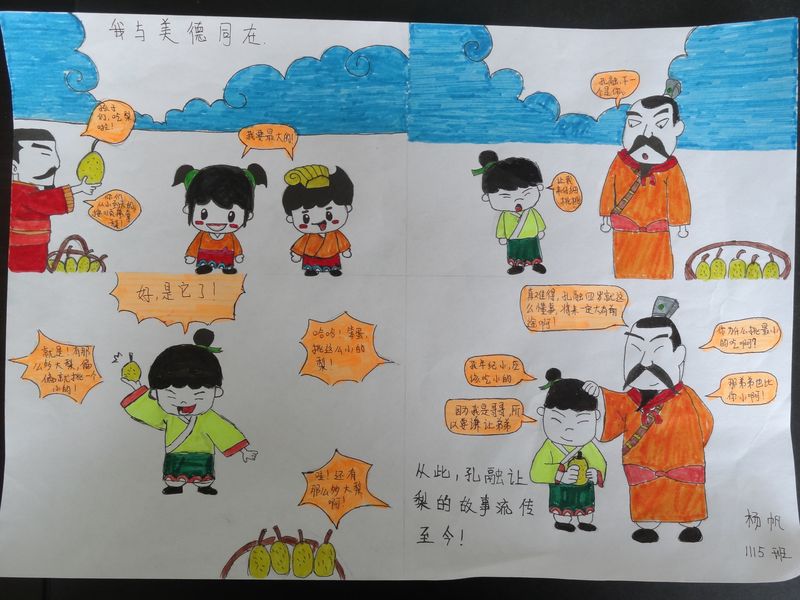 我与美德同在.
孩子
们,吃梨
啦!
你们
我要最大的!
孔融,下一
个是你.
让我
来仔细
挑挑
好,是它了!
就是!有那
么多大梨,偏
偏就挑一个
小的!
哈哈!笨蛋,
挑这么小的
梨!
哇!还有
那么多大梨
啊!
真难得,孔融四岁就这
么懂事,将来一定大有前
途啊!
你为什么挑最小
的吃啊?
我年纪小,应
该吃小的
那弟弟也比
你小啊!
因为我是哥哥,所
以要谦让弟弟
从此,孔融让
梨的故事流传
至今!
杨帆
1115班